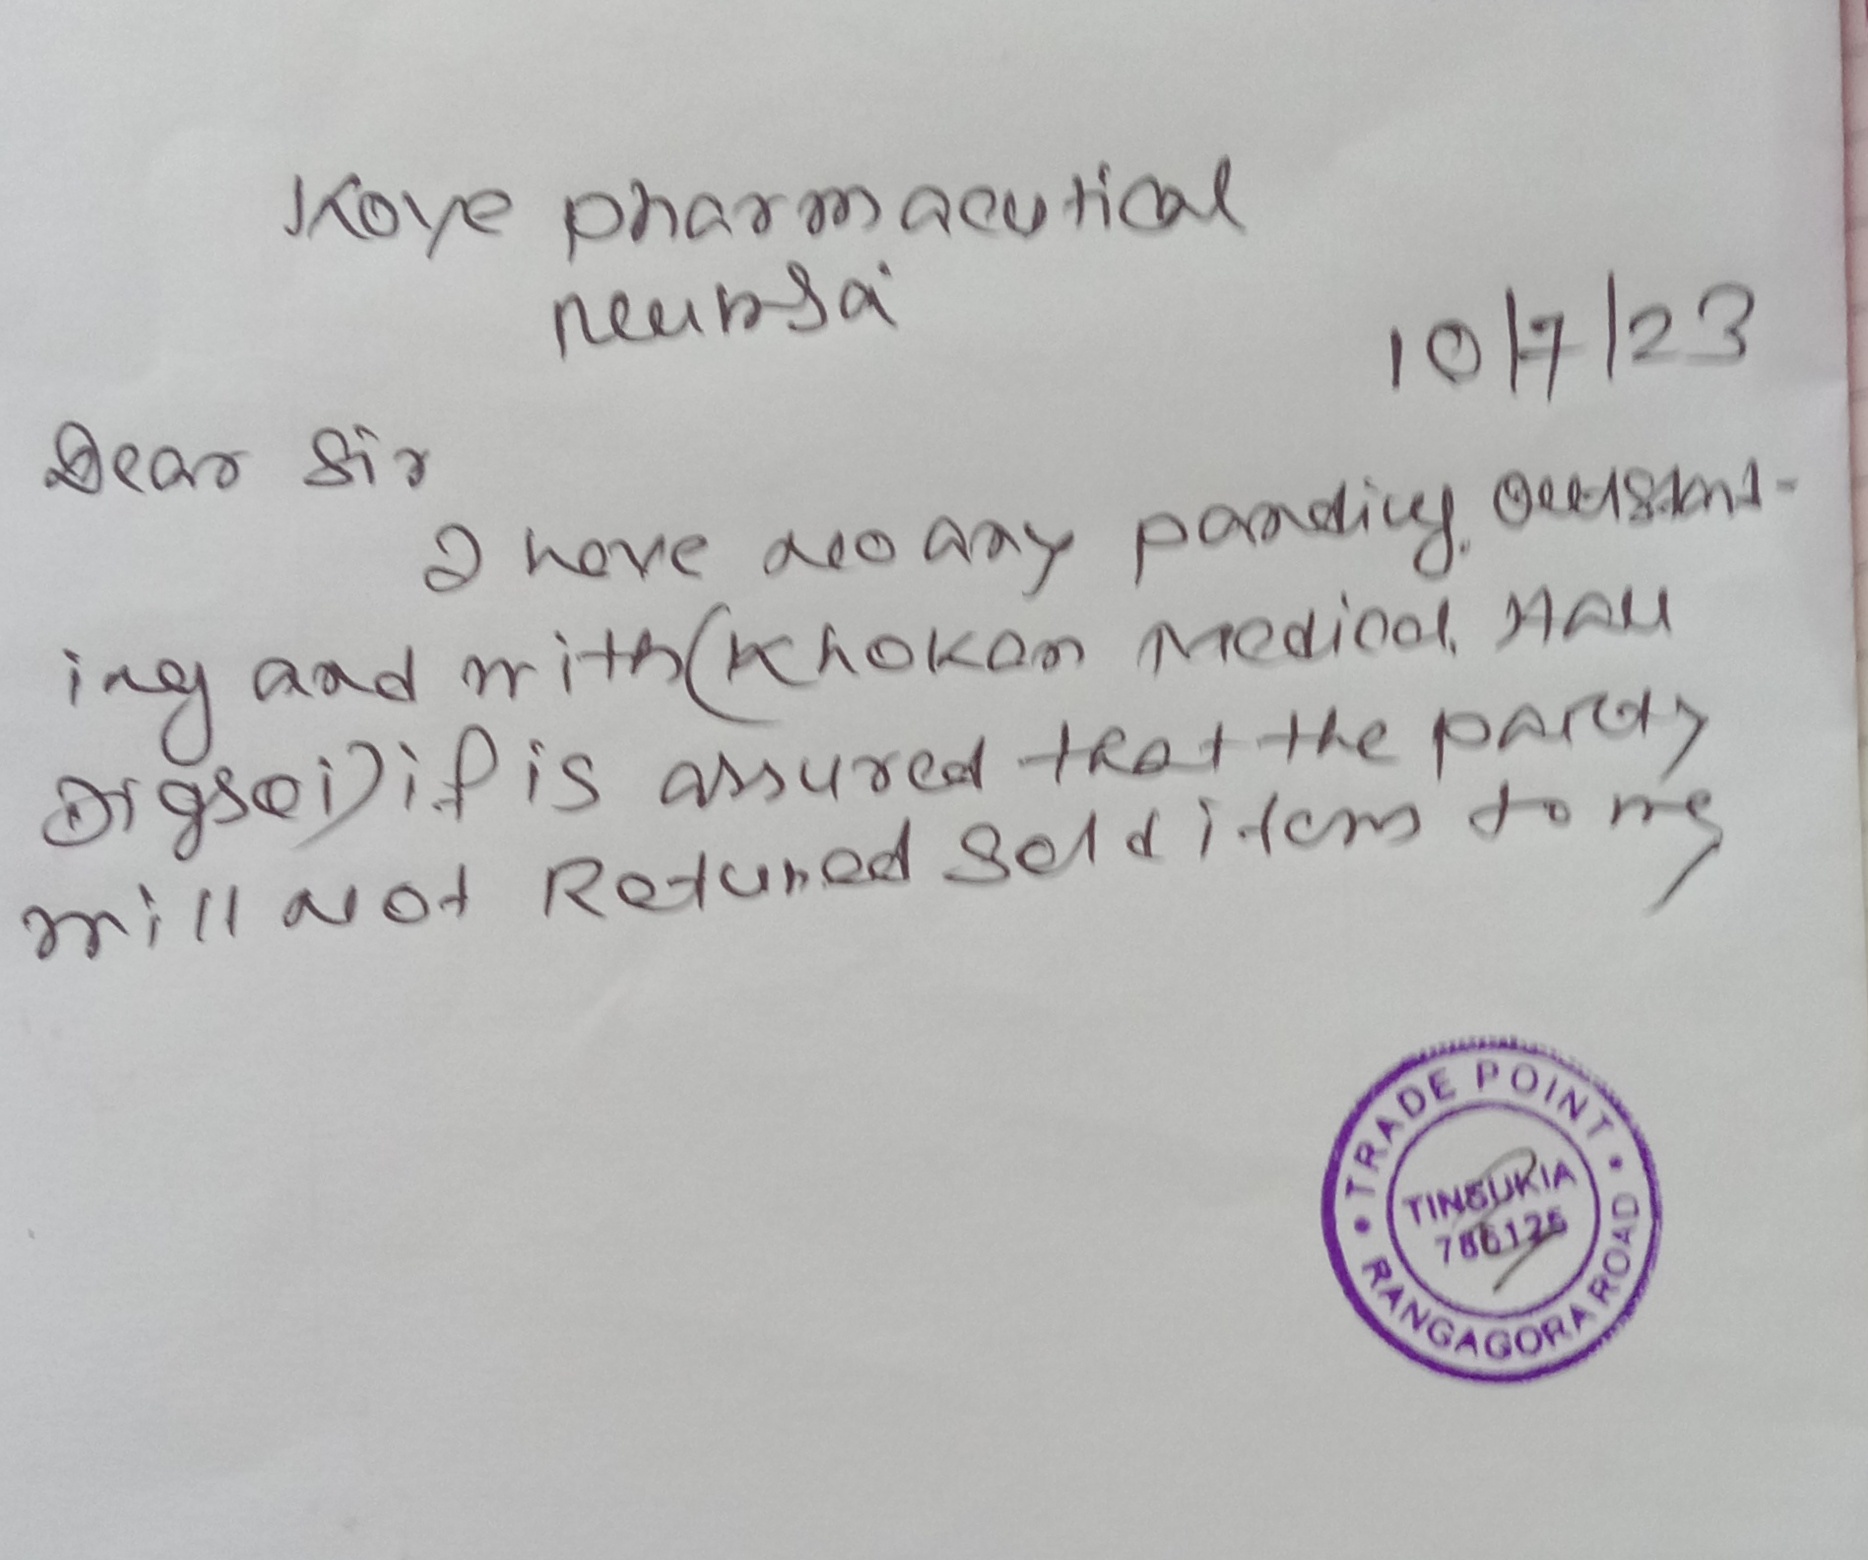 Koye pharmaceutical
10/7/23
Dear Sir
I have no any panding outstand-
ing and with (Khokan Medical Hall
Digboi) if is assured that the party
will not Retuned sold items to me
TRADE POINT
TINSUKIA
786125
RANGAGORA ROAD